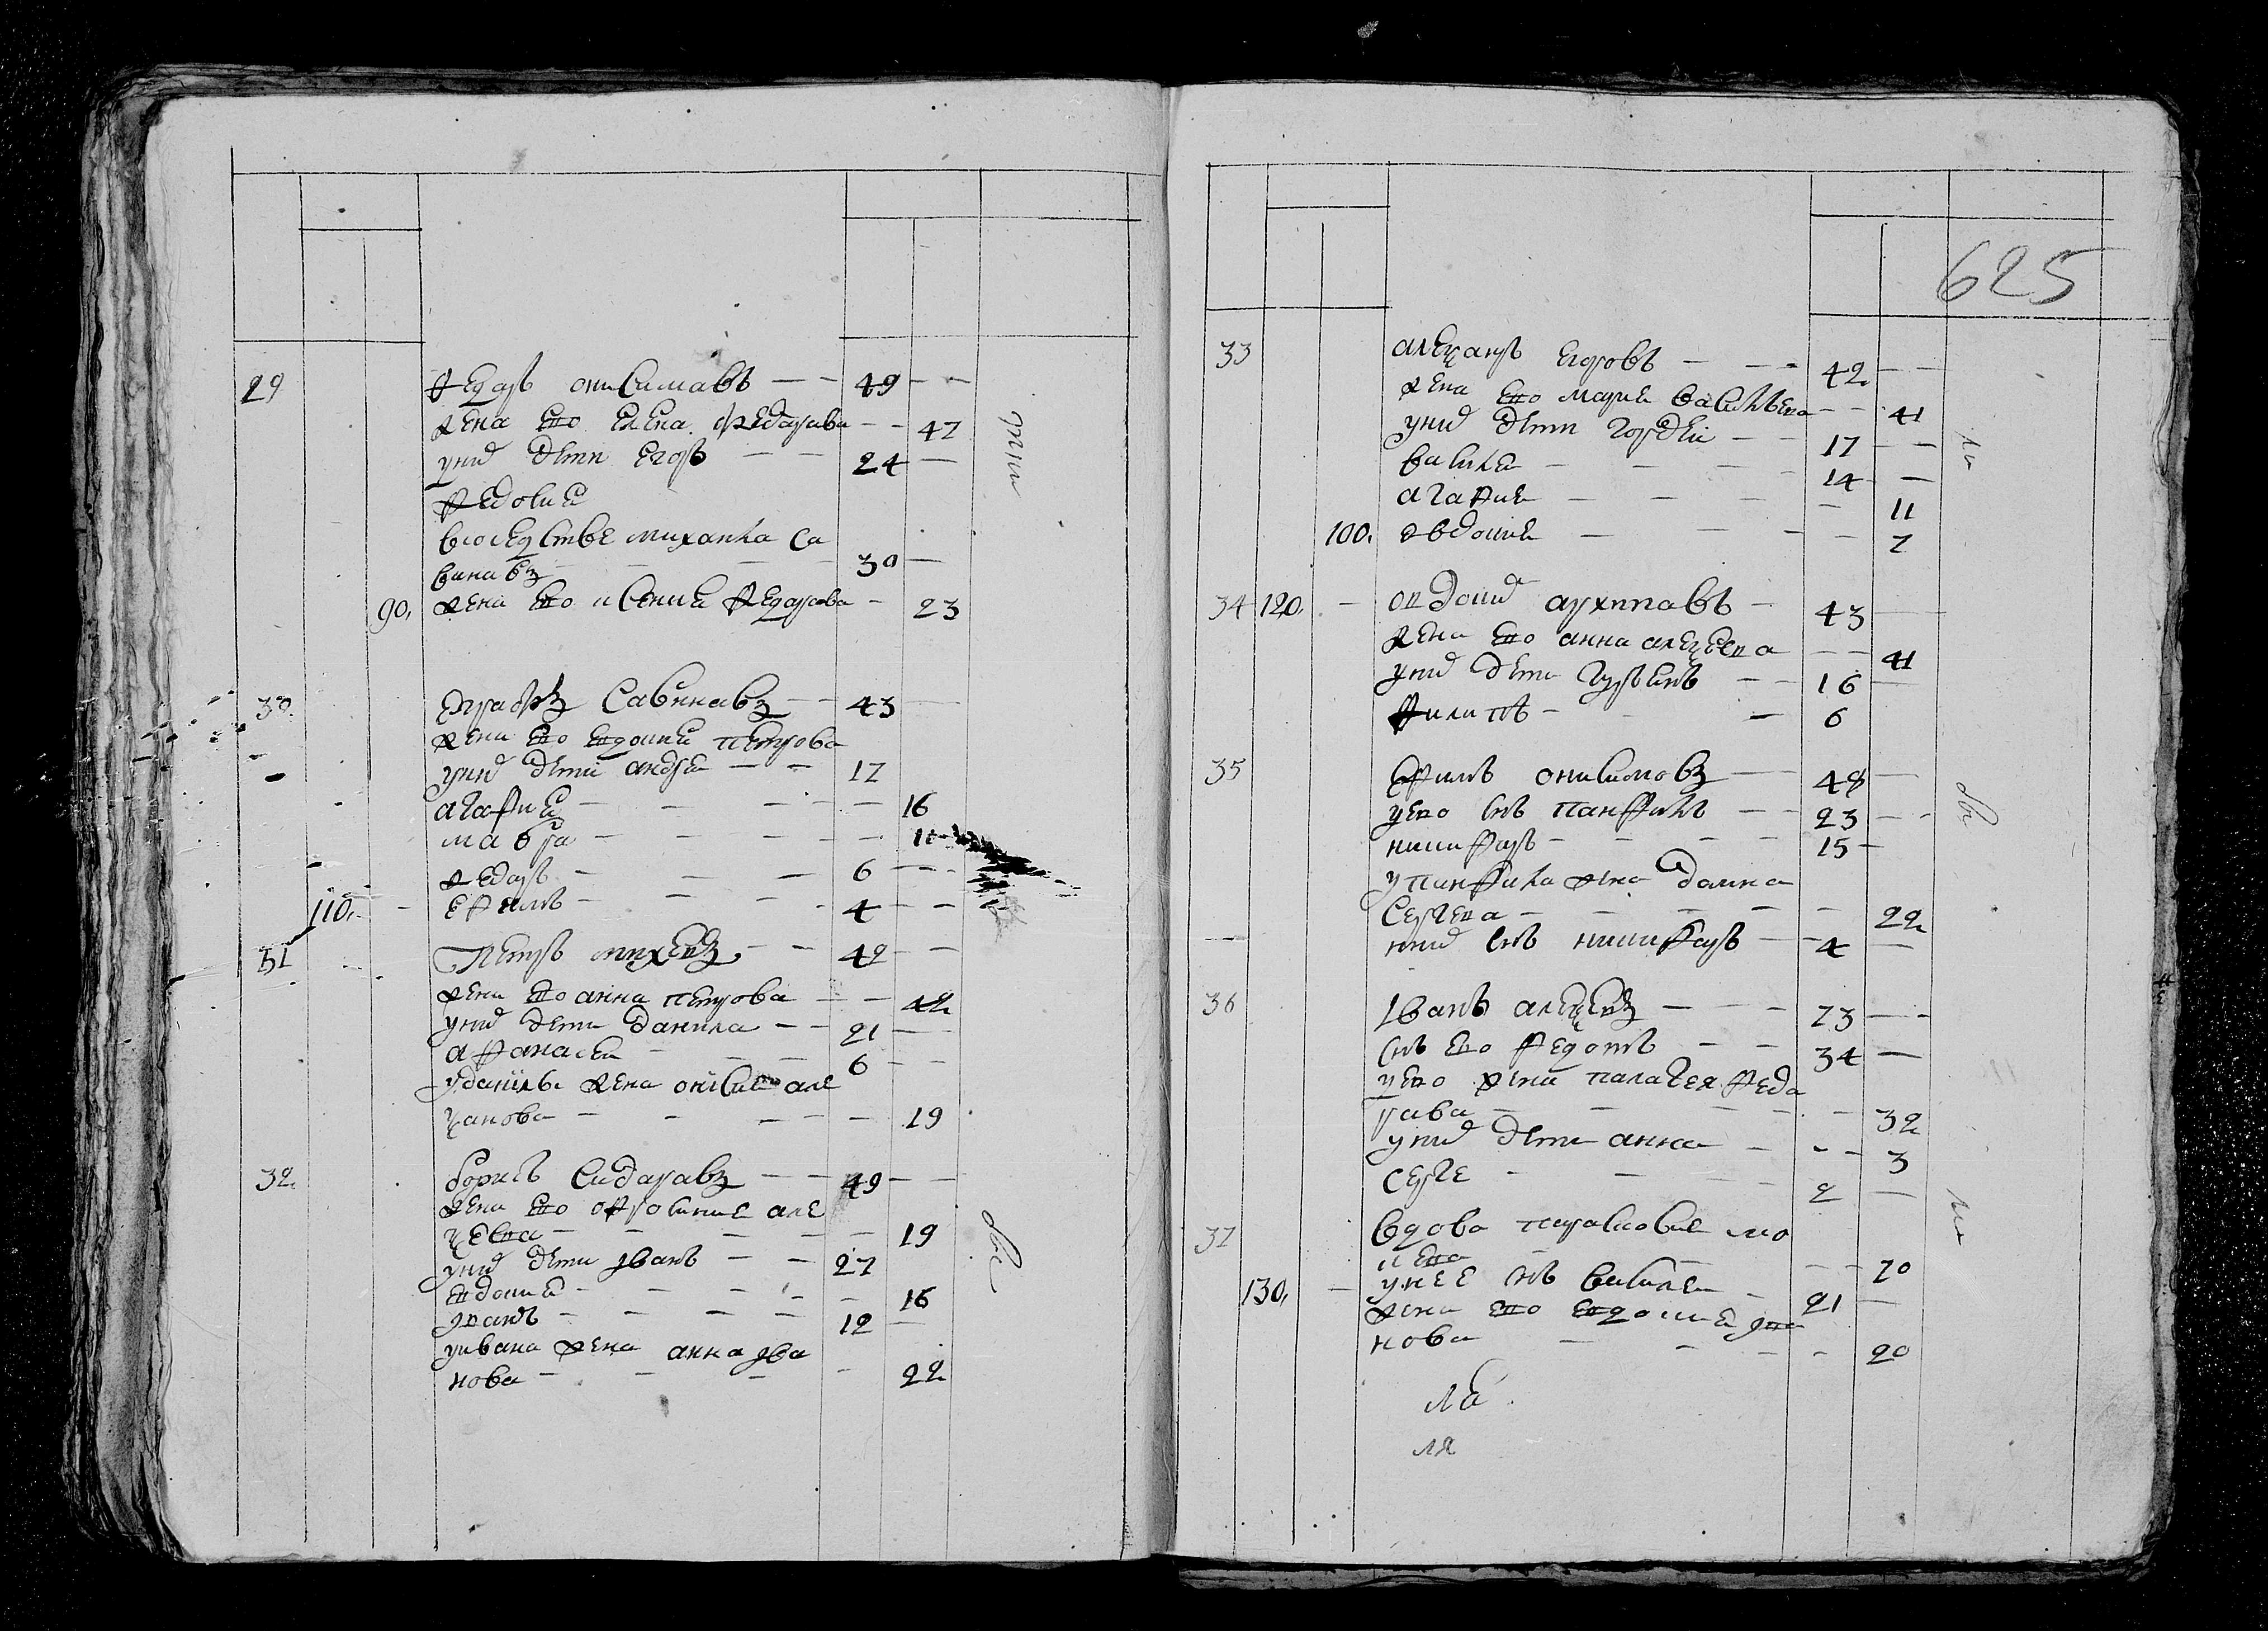 29 Федоръ онисимавъ — — 49 — —
жена ево елена федарава — — 47
уних дети егоръ — — 24 —
федосиа
вмоседстве михаила са
винавъ — — — 30 —
90. жена ево ксения федарова — 23
30. евграфъ Савинавъ — — 43 —
жена ево евдокиа петрова
уних дети андреи — — 17
агафиа — — — — 16
мавра — — — — 11
федаръ — — — 6 — —
110. — ефимъ — — — 4 — —
31 Петръ михеевъ — — 42 — —
жена ево анна петрова — — 42
уних дети данила — — 21 —
афанасеи — — 6 — —
уданилы жена
— — — — 19
32. борисъ сидаравъ — — 49 — —
жена ево афросиние але
ксевна — — — — 19
уних дети иванъ — — 27
евдокиа — — — — 16
иванъ — — — — 12 —
уивана жена анна ива
нова — — — — 22
625
33 александръ егоровъ — — — 42 — —
жена ево мария васильева — — 41
уних дети гордеи — — 17 — —
василеи — — — — 14 —
агафия — — — — 11
100. авдотиа — — — — 7
34 120. — архипавъ — 43 —
жена ево анна алексеева — — 41
уних дети — — 16 —
филипъ — — — 6
35 Ефимъ онисимовъ — — 48 —
уево снъ панфилъ — — 23 — —
никифаръ — — — — 15 —
упанфила жена домна
Сергева — — — — — 22
них снъ никифаръ — — 4 —
36 Иванъ алексеевъ — — — 73 — —
снъ ево федотъ — — 34 —
уево жена палагея феда
рава — — — — 32
уних дети анна — — — 3
серге — — — — 2 —
37 вдова парасковие мо
— — — 70
130. — унее снъ василеи — 21 —
жена ево евдокиа ива
нова — — — — 20
ла
ля